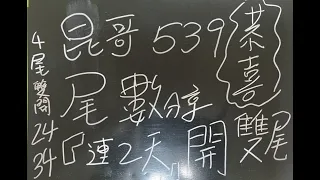 昆哥 539
恭喜
尾數分享
『連2天』開
雙尾
4尾雙開
24
34